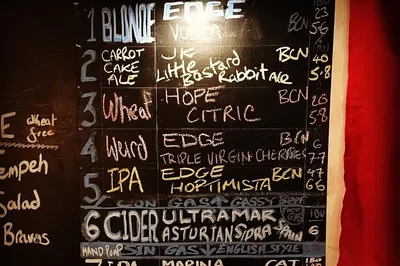 1 BLONDE EDGE BCN 23
5·6
2 CARROT CAKE ALE JK Little Bastard Rabbit ALE BCN 40
5·8
3 Wheat HOPE CITRIC BCN 26
5·8
4 Weird EDGE BCN 6
TRIPLE VIRGIN CHERRIES 7·7
5 IPA EDGE HOPTIMISTA BCN 47
6·6
CON GAS GASSY BEER
6 CIDER ULTRAMAR ASTURIAN SIDRA SPAIN
HAND PUMP SIN GAS ENGLISH STYLE
7 IPA MARINA CAT
E wheat free
Tempeh
Salad
Bravas